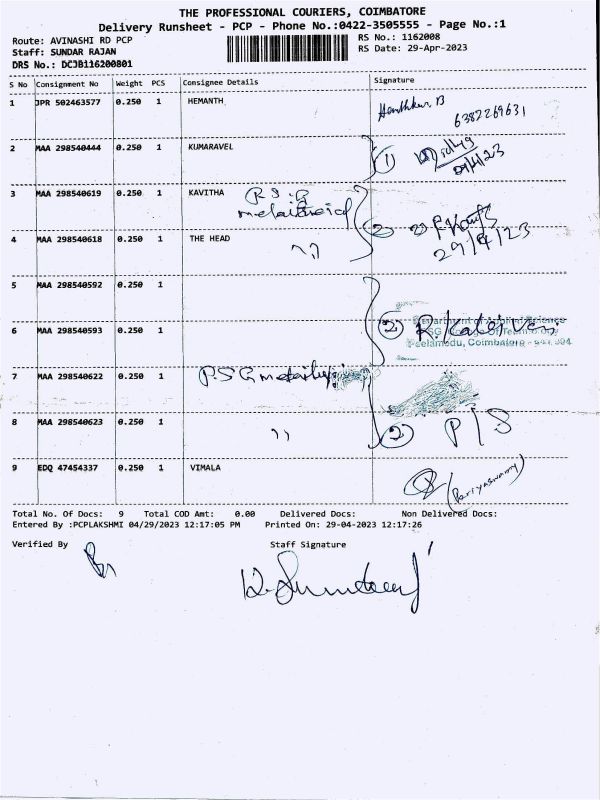 THE PROFESSIONAL COURIERS, COIMBATORE
Delivery Runsheet - PCP - Phone No.:0422-3505555 - Page No.:1
Route: AVINASHI RD PCP
RS No.: 1162008
Staff: SUNDAR RAJAN
RS Date: 29-Apr-2023
DRS No.: DCJB116200801
S No Consignment No Weight PCS Consignee Details Signature
1 JPR 502463577 0.250 1 HEMANTH
6382269631
2 MAA 298540444 0.250 1 KUMARAVEL
1
3 MAA 298540619 0.250 1 KAVITHA
2
29/4/23
4 MAA 298540618 0.250 1 THE HEAD
5 MAA 298540592 0.250 1
Department of Applied Science
6 MAA 298540593 0.250 1
2 R. Kalejveni
Peelamedu, Coimbatore - 641 004
7 MAA 298540622 0.250 1 P.S.G
8 MAA 298540623 0.250 1
2 P/S
9 EDQ 47454337 0.250 1 VIMALA
(Periyaswamy)
Total No. Of Docs: 9 Total COD Amt: 0.00 Delivered Docs: Non Delivered Docs:
Entered By :PCPLAKSHMI 04/29/2023 12:17:05 PM Printed On: 29-04-2023 12:17:26
Verified By Staff Signature